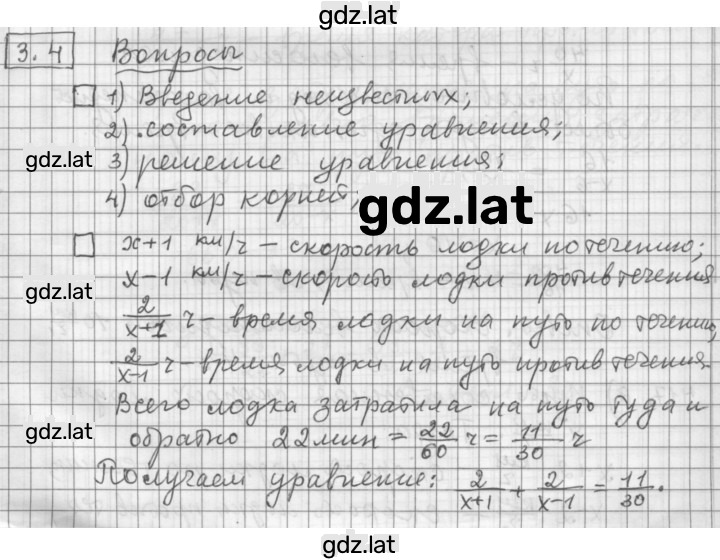 gdz.lat
3.4 Вопросы
1) Введение неизвестных;
2) составление уравнения;
gdz.lat 3) решение уравнения;
4) отбор корней;
gdz.lat
x+1 км/ч – скорость лодки по течению;
x-1 км/ч – скорость лодки против течения
gdz.lat
2/(x+1) ч – время лодки на путь по течению,
2/(x-1) ч – время лодки на путь против течения.
Всего лодка затратила на путь туда и
gdz.lat обратно 22 мин = 22/60 ч = 11/30 ч
Получаем уравнение: 2/(x+1) + 2/(x-1) = 11/30.
gdz.lat